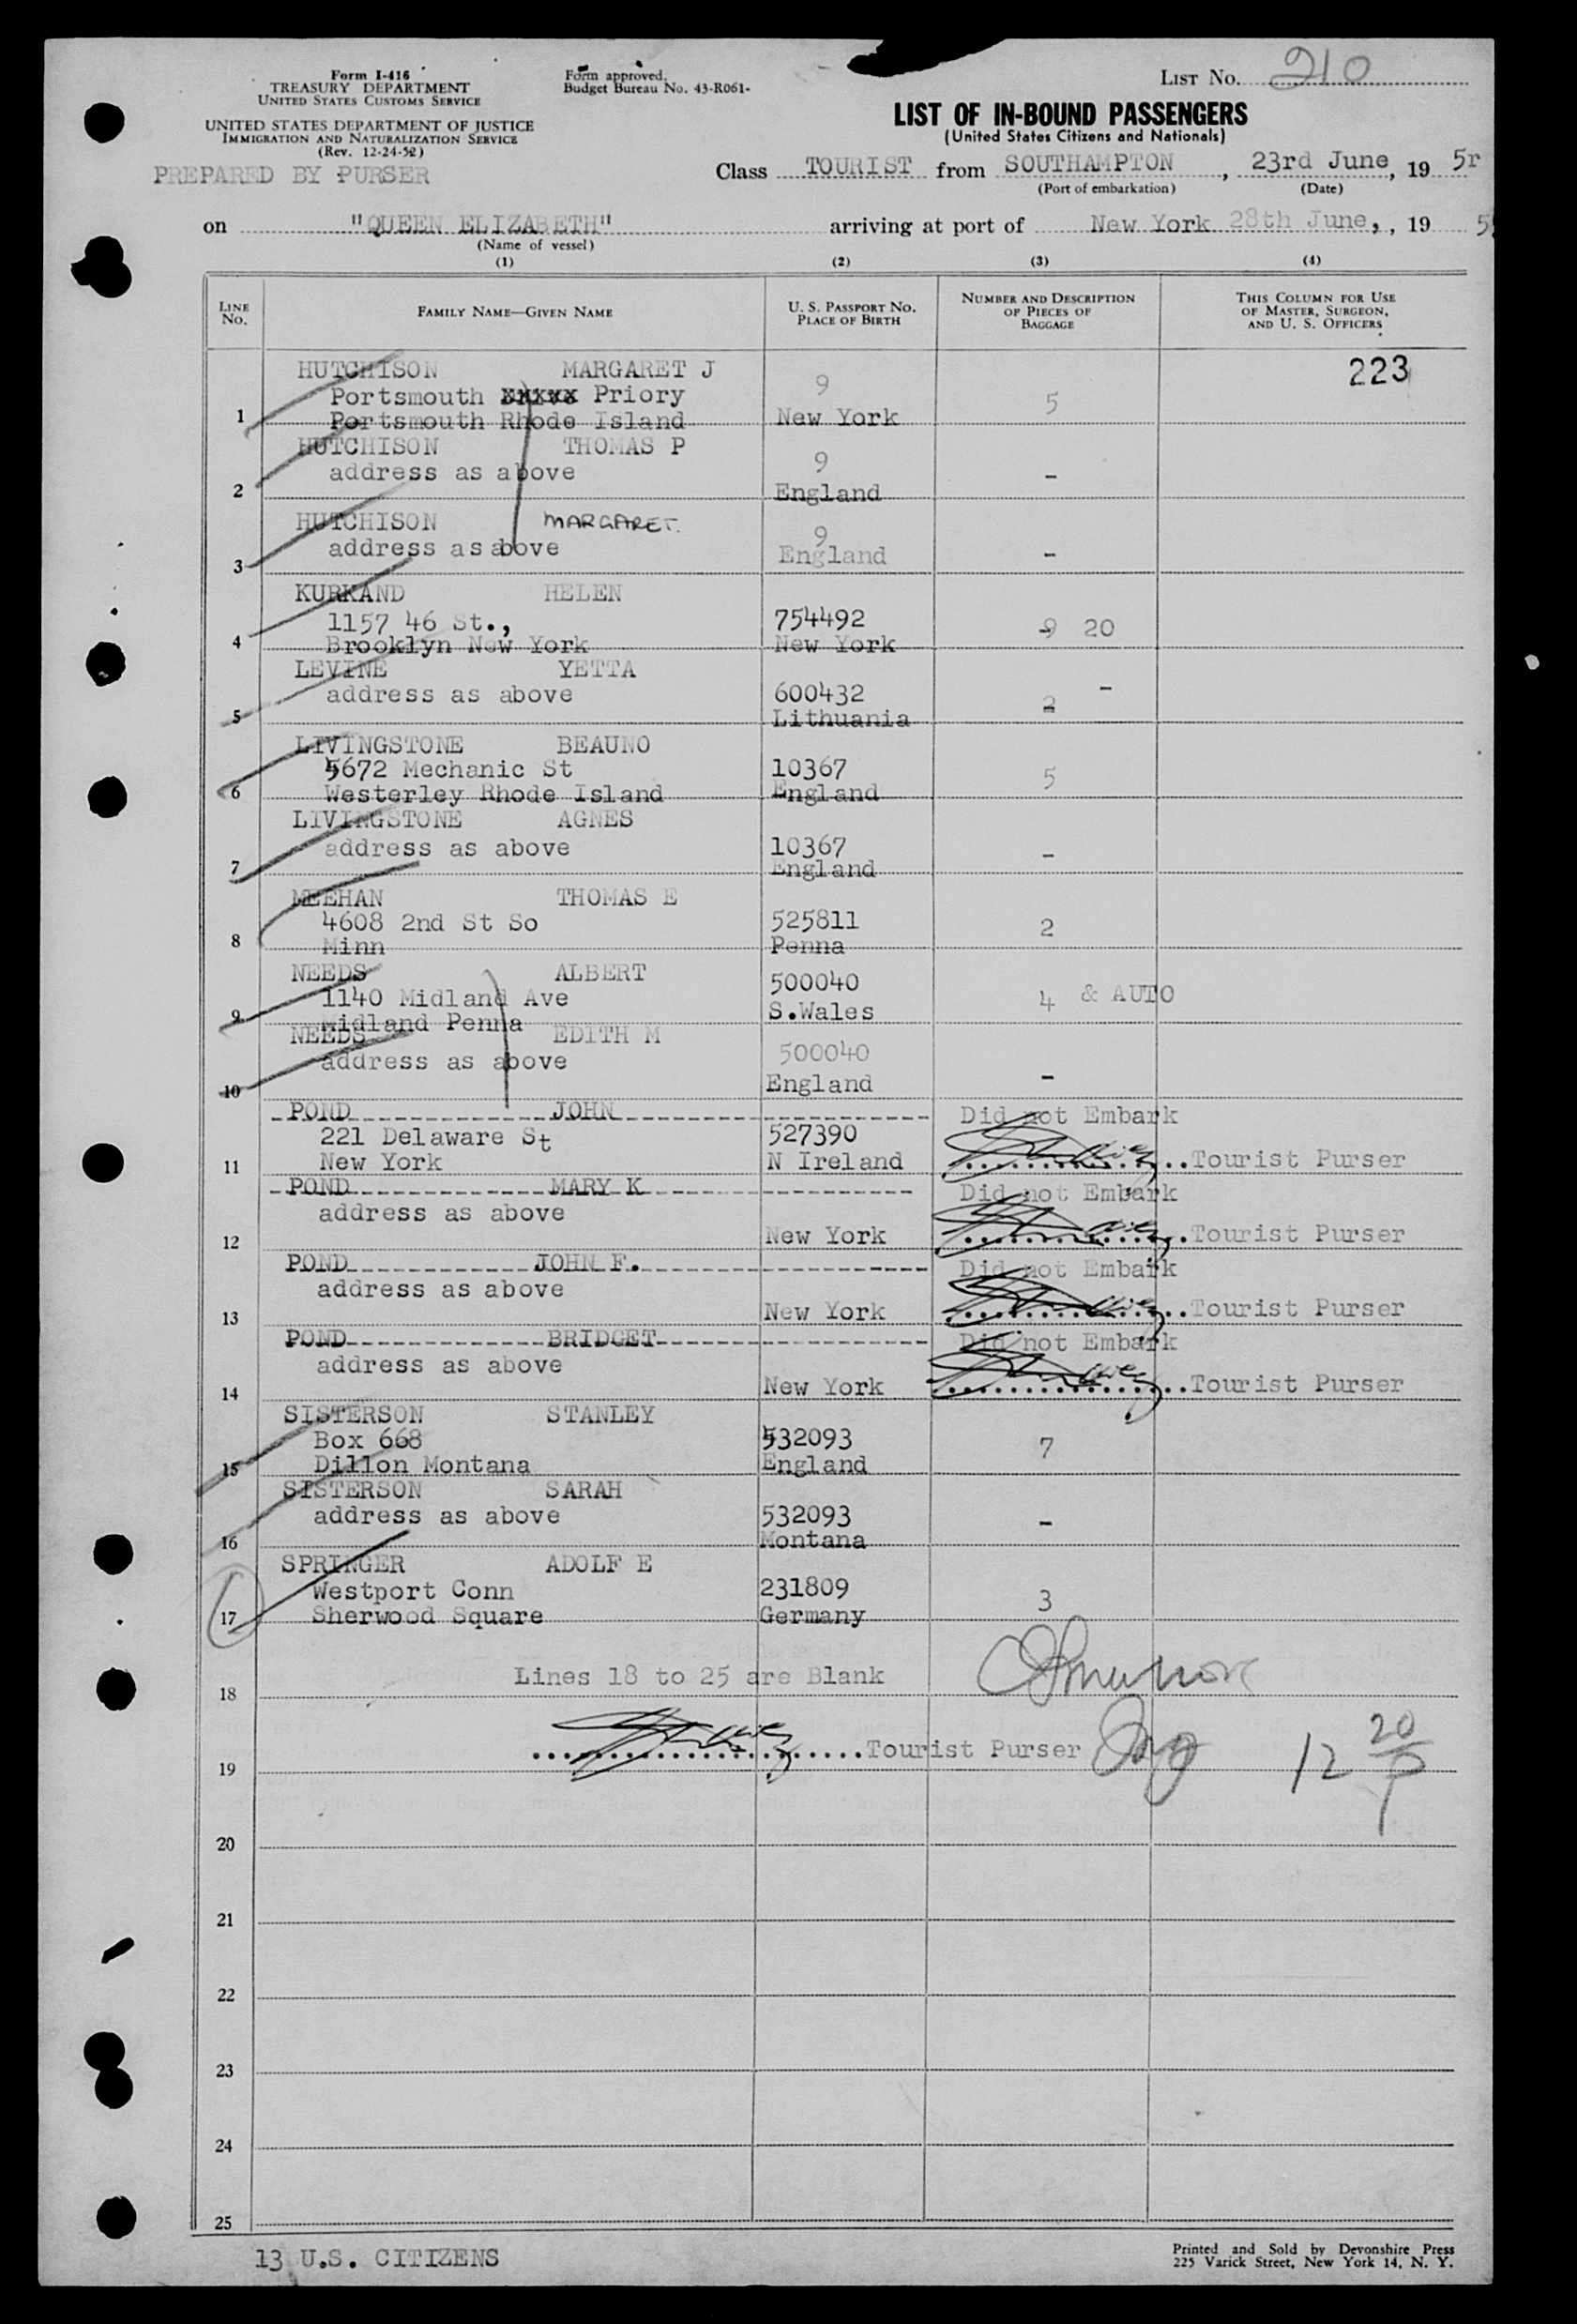 Form I-416
TREASURY DEPARTMENT
UNITED STATES CUSTOMS SERVICE
UNITED STATES DEPARTMENT OF JUSTICE
IMMIGRATION AND NATURALIZATION SERVICE
(Rev. 12-24-52)
PREPARED BY PURSER
Form approved.
Budget Bureau No. 43-R061-
LIST No. 210
LIST OF IN-BOUND PASSENGERS
(United States Citizens and Nationals)
Class TOURIST from SOUTHAMPTON, 23rd June, 19 5
(Port of embarkation) (Date)
on "QUEEN ELIZABETH" arriving at port of New York 28th June,, 19 5
(Name of vessel)
(1) (2) (3) (4)
LINE No. FAMILY NAME—GIVEN NAME U. S. PASSPORT NO. PLACE OF BIRTH NUMBER AND DESCRIPTION OF PIECES OF BAGGAGE THIS COLUMN FOR USE OF MASTER, SURGEON, AND U. S. OFFICERS
223
HUTCHISON MARGARET J 9
Portsmouth Priory 5
1 Portsmouth Rhode Island New York
HUTCHISON THOMAS P 9
address as above -
2 England
HUTCHISON MARGARET. 9
address as above England -
3
KURKAND HELEN
1157 46 St., 754492 9 20
4 Brooklyn New York New York
LEVINE YETTA
address as above 600432 2 -
5 Lithuania
LIVINGSTONE BEAUNO
5672 Mechanic St 10367 5
6 Westerley Rhode Island England
LIVINGSTONE AGNES
address as above 10367 -
7 England
MEEHAN THOMAS E
4608 2nd St So 525811 2
8 Minn Penna
NEEDS ALBERT 500040
1140 Midland Ave S.Wales 4 & AUTO
9 Midland Penna
NEEDS EDITH M 500040
address as above -
10 England
POND JOHN Did not Embark
221 Delaware St 527390
11 New York N Ireland Tourist Purser
POND MARY K Did not Embark
address as above
12 New York Tourist Purser
POND JOHN F. Did not Embark
address as above
13 New York Tourist Purser
POND BRIDGET Did not Embark
address as above
14 New York Tourist Purser
SISTERSON STANLEY
Box 668 532093 7
15 Dillon Montana England
SISTERSON SARAH
address as above 532093 -
16 Montana
SPRINGER ADOLF E
Westport Conn 231809 3
17 Sherwood Square Germany
Lines 18 to 25 are Blank
18
Tourist Purser 12 20
19
20
21
22
23
24
25
13 U.S. CITIZENS
Printed and Sold by Devonshire Press
225 Varick Street, New York 14, N. Y.